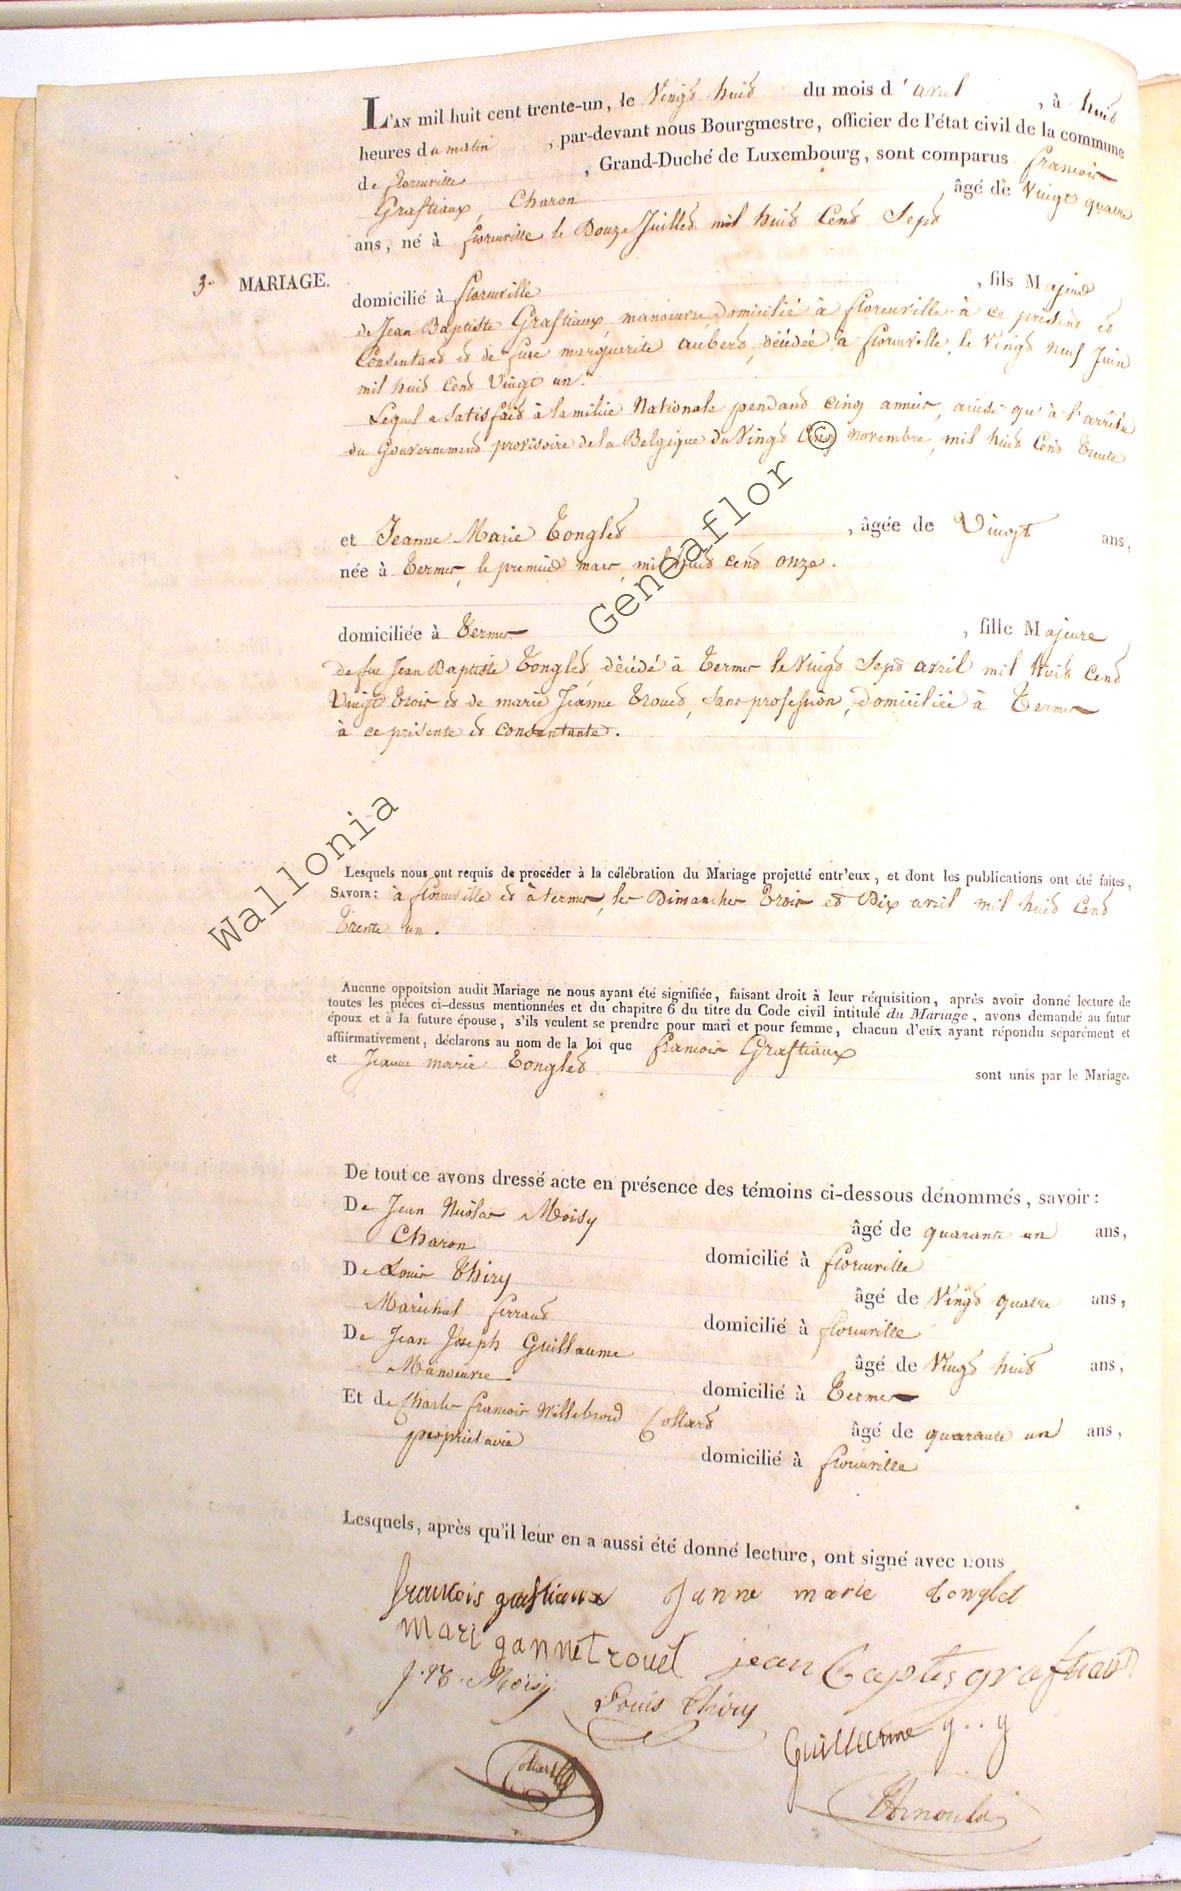 L'AN mil huit cent trente-un, le Vingt huit du mois d'avril, à huit
heures du matin, par-devant nous Bourgmestre, officier de l'état civil de la commune
de florenville, Grand-Duché de Luxembourg, sont comparus francois
Grastiaux, Charon, âgé de Vingt quatre
ans, né à florenville le Douze Juillet mil huit Cent Sept
3e MARIAGE.
domicilié à florenville, fils Majeur
de Jean Baptiste Grastiaux, manoeuvre, domicilié à florenville à ce présent et
Consentant et de feue marguerite aubert, décédée à florenville, le Vingt neuf Juin
mil huit Cent Vingt un.
Lequel a Satisfait à la milice Nationale pendant cinq années, ainsi qu'à l'arrêté
du Gouvernement provisoire de la Belgique du Vingt novembre, mil huit Cent Trente
et Jeanne Marie Tonglet, âgée de Vingt ans,
née à Termes, le premier mars, mil huit cent onze.
domiciliée à Termes, fille Majeure
de feu Jean Baptiste Tonglet, décédé à Termes le Vingt Sept avril mil huit Cent
Vingt trois et de marie Jeanne Trouet, Sans profession, domiciliée à Termes
à ce présente et consentante.
Lesquels nous ont requis de procéder à la célébration du Mariage projetté entr'eux, et dont les publications ont été faites,
SAVOIR: à florenville et à termes, les Dimanches Trois et Dix avril mil huit Cent
Trente un.
Aucune oppoitsion audit Mariage ne nous ayant été signifiée, faisant droit à leur réquisition, après avoir donné lecture de
toutes les pièces ci-dessus mentionnées et du chapitre 6 du titre du Code civil intitulé du Mariage, avons demandé au futur
époux et à la future épouse, s'ils veulent se prendre pour mari et pour femme, chacun d'eux ayant répondu séparément et
affiirmativement, déclarons au nom de la loi que francois Grastiaux
et Jeanne marie Tonglet sont unis par le Mariage.
De tout ce avons dressé acte en présence des témoins ci-dessous dénommés, savoir:
De Jean Nicolas Moisy âgé de quarante un ans,
Charon domicilié à florenville
De Louis Thiry âgé de Vingt quatre ans,
Maréchal ferrant domicilié à florenville
De Jean Joseph Guillaume âgé de Vingt huit ans,
Manoeuvre domicilié à Termes
Et de Charles francois Willebrord Collard âgé de quarante un ans,
propriétaire domicilié à florenville
Lesquels, après qu'il leur en a aussi été donné lecture, ont signé avec nous
francois grastiaux Janne marie tonglet
mari ganne trouet jean baptis grastiaux
J. N. Moisy Louis thiry
Guillaume g..y
Collard
Arnould
Wallonia Geneaflor ©